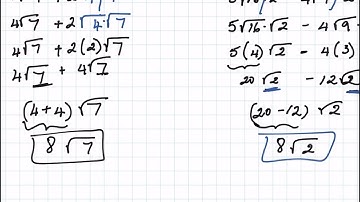 4√7 + 2√4·√7
4√7 + 2(2)√7
4√7 + 4√7
(4+4)√7
8√7
5√16·√2 - 4√9·
5(4)√2 - 4(3)
20√2 - 12√2
(20-12)√2
8√2